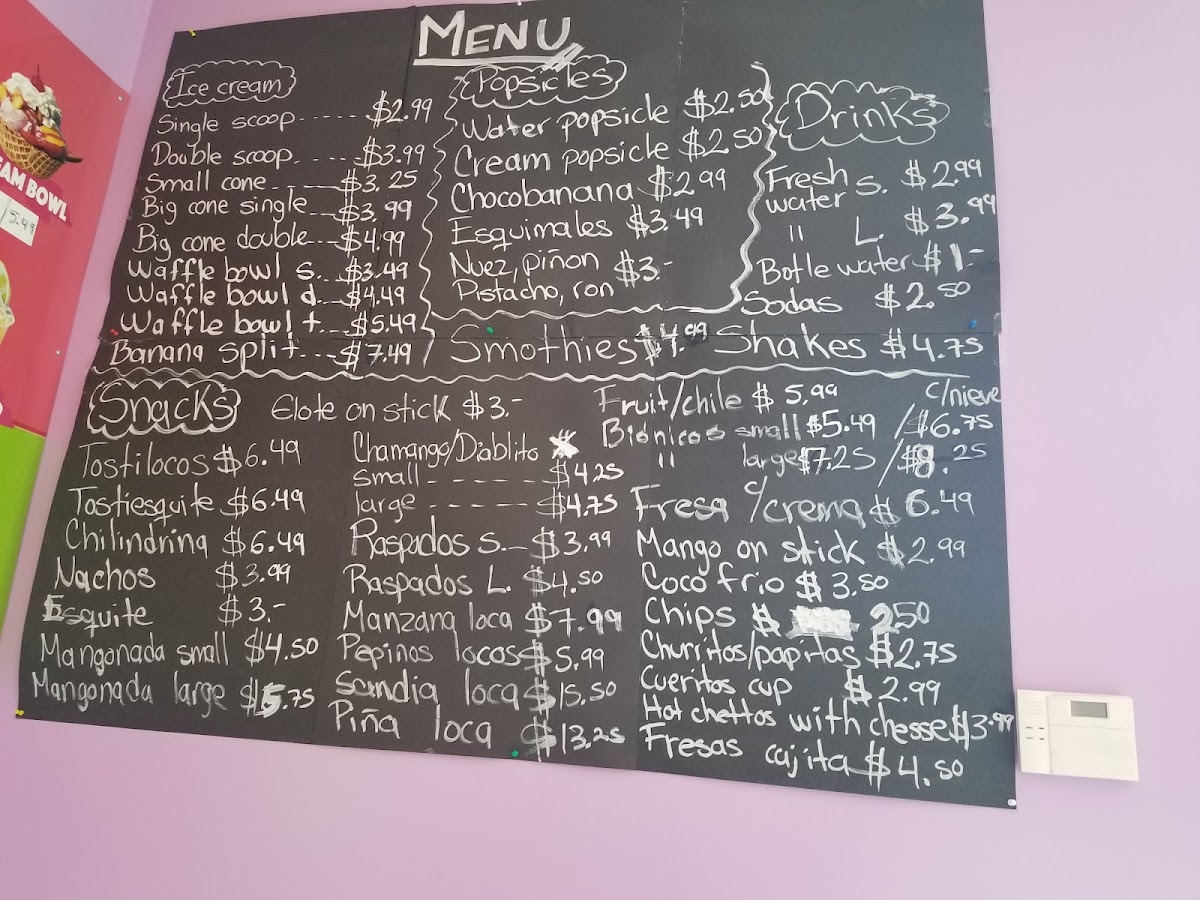 MENU
Ice cream
Single scoop------ $2.99
Double scoop.---- $3.99
Small cone---- $3.25
Big cone single--- $3.99
Big cone double--- $4.99
Waffle bowl s.-- $3.49
Waffle bowl d.-- $4.49
Waffle bowl t.-- $5.49
Banana split--- $7.49
Popsicles
Water popsicle $2.50
Cream popsicle $2.50
Chocobanana $2.99
Esquimales $3.49
Nuez, piñon
Pistacho, ron $3.-
Drinks
Fresh
water s. $2.99
" L. $3.99
Botle water $1-
Sodas $2.50
Smothies $4.99 Shakes $4.75
Snacks
Elote on stick $3.-
Tostilocos $6.49
Tostiesquite $6.49
Chilindrina $6.49
Nachos $3.99
Esquite $3.-
Mangonada small $4.50
Mangonada large $5.75
Chamango/Diablito
small-------- $4.25
large-------- $4.75
Raspados s.-- $3.99
Raspados L. $4.50
Manzana loca $7.99
Pepinos locos $5.99
Sandia loca $15.50
Piña loca $13.25
Fruit/chile $5.99 c/nieve
Biónicos small $5.49 /$6.75
" large $7.25 /$8.25
Fresa c/crema $6.49
Mango on stick $2.99
Coco frio $3.50
Chips $ 2.50
Churritos/papitas $2.75
Cueritos cup $2.99
Hot chettos with chesse $3.99
Fresas cajita $4.50
EAM BOWL
5.49